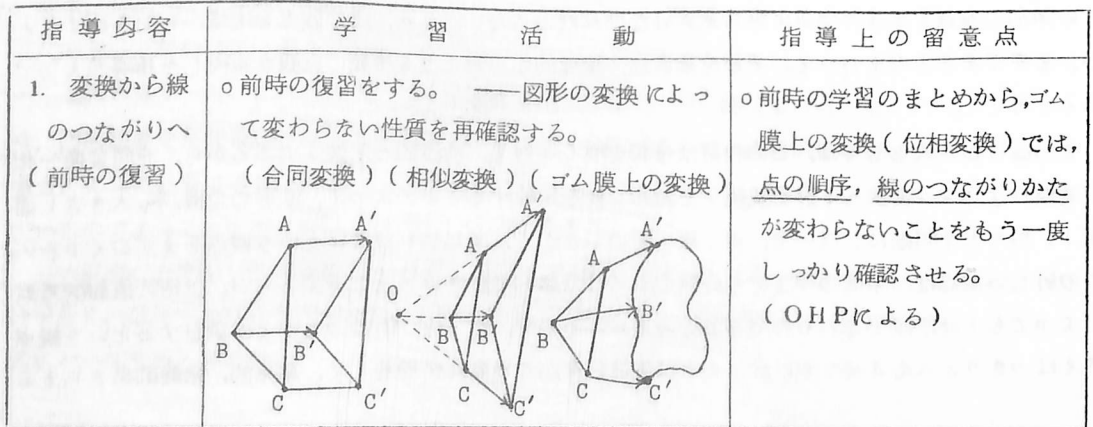 指導内容
学習活動
指導上の留意点
1. 変換から線
のつながりへ
(前時の復習)
○前時の復習をする。 ――図形の変換によっ
て変わらない性質を再確認する。
(合同変換)(相似変換)(ゴム膜上の変換)
A A′
B B′
C C′
A′
A
O
B B′
C C′
A′
A
B B′
C C′
○前時の学習のまとめから,ゴム
膜上の変換(位相変換)では,
点の順序,線のつながりかた
が変わらないことをもう一度
しっかり確認させる。
(OHPによる)